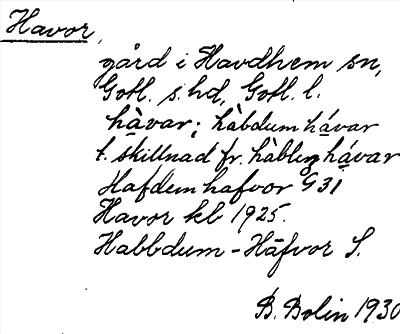 Havor,
gård i Havdhem sn,
Gotl. s. hd, Gotl. l.
hàvar; hàbdum hávar
t. skillnad fr. hàbling hávar
Hafdem hafvor G 31
Havor kb 1925.
Habbdum - Häfvor S.
B. Bolin 1930